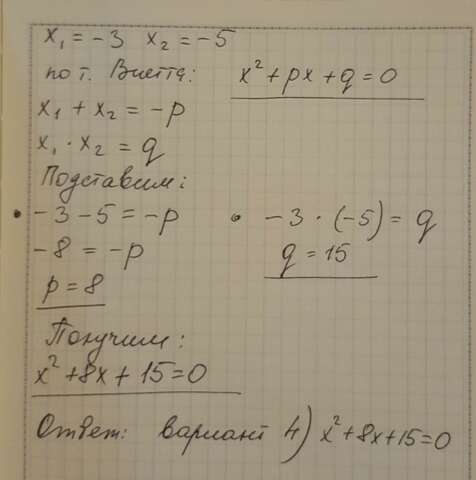 x₁ = -3  x₂ = -5
по т. Виета:  x² + px + q = 0
x₁ + x₂ = -p
x₁ · x₂ = q
Подставим:
• -3 - 5 = -p  • -3 · (-5) = q
-8 = -p  q = 15
p = 8
Получим:
x² + 8x + 15 = 0
Ответ: вариант 4) x² + 8x + 15 = 0